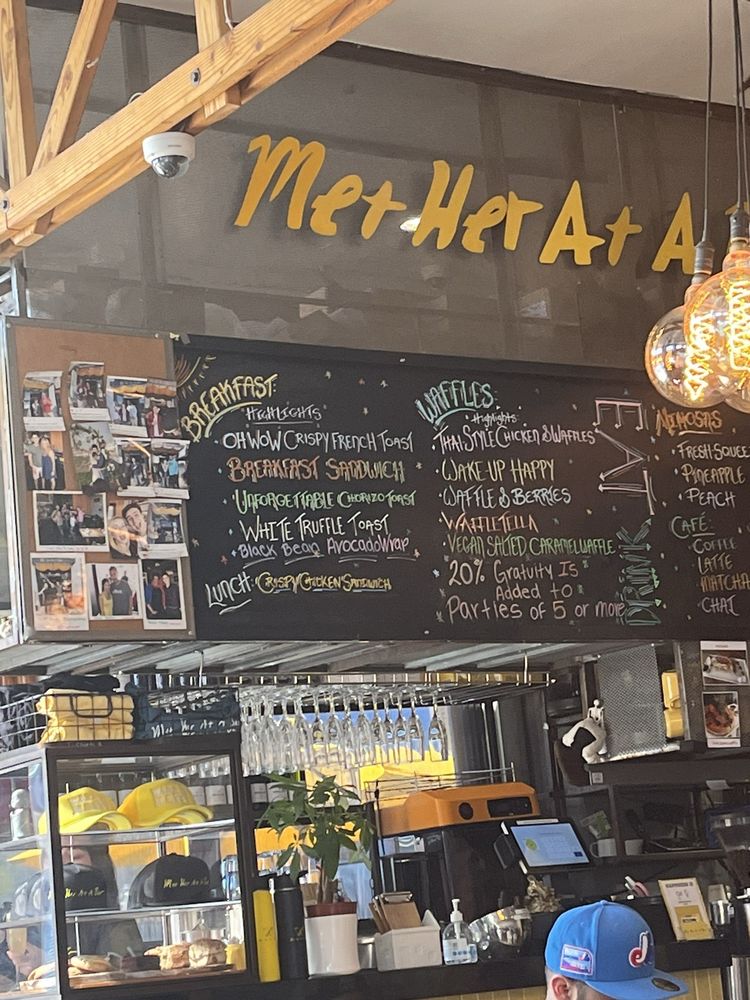 Met Her At A
BREAKFAST:
HIGHLIGHTS
OH WOW CRISPY FRENCH TOAST
BREAKFAST SANDWICH
UNFORGETTABLE CHORIZO TOAST
WHITE TRUFFLE TOAST
BLACK BEAN AVOCADO WRAP
LUNCH: CRISPY CHICKEN SANDWICH
WAFFLES:
Highlights:
THAI STYLE CHICKEN & WAFFLES
WAKE UP HAPPY
WAFFLE & BERRIES
WAFFLETELLA
VEGAN SALTED CARAMEL WAFFLE
20% Gratuity Is
Added to
Parties of 5 or more
EAT
DRINK
MIMOSAS
FRESH SQUEE
PINEAPPLE
PEACH
CAFÉ:
COFFEE
LATTE
MATCHA
CHAI
Met Her At A
Met Her At A Bar
Met Her At A Bar